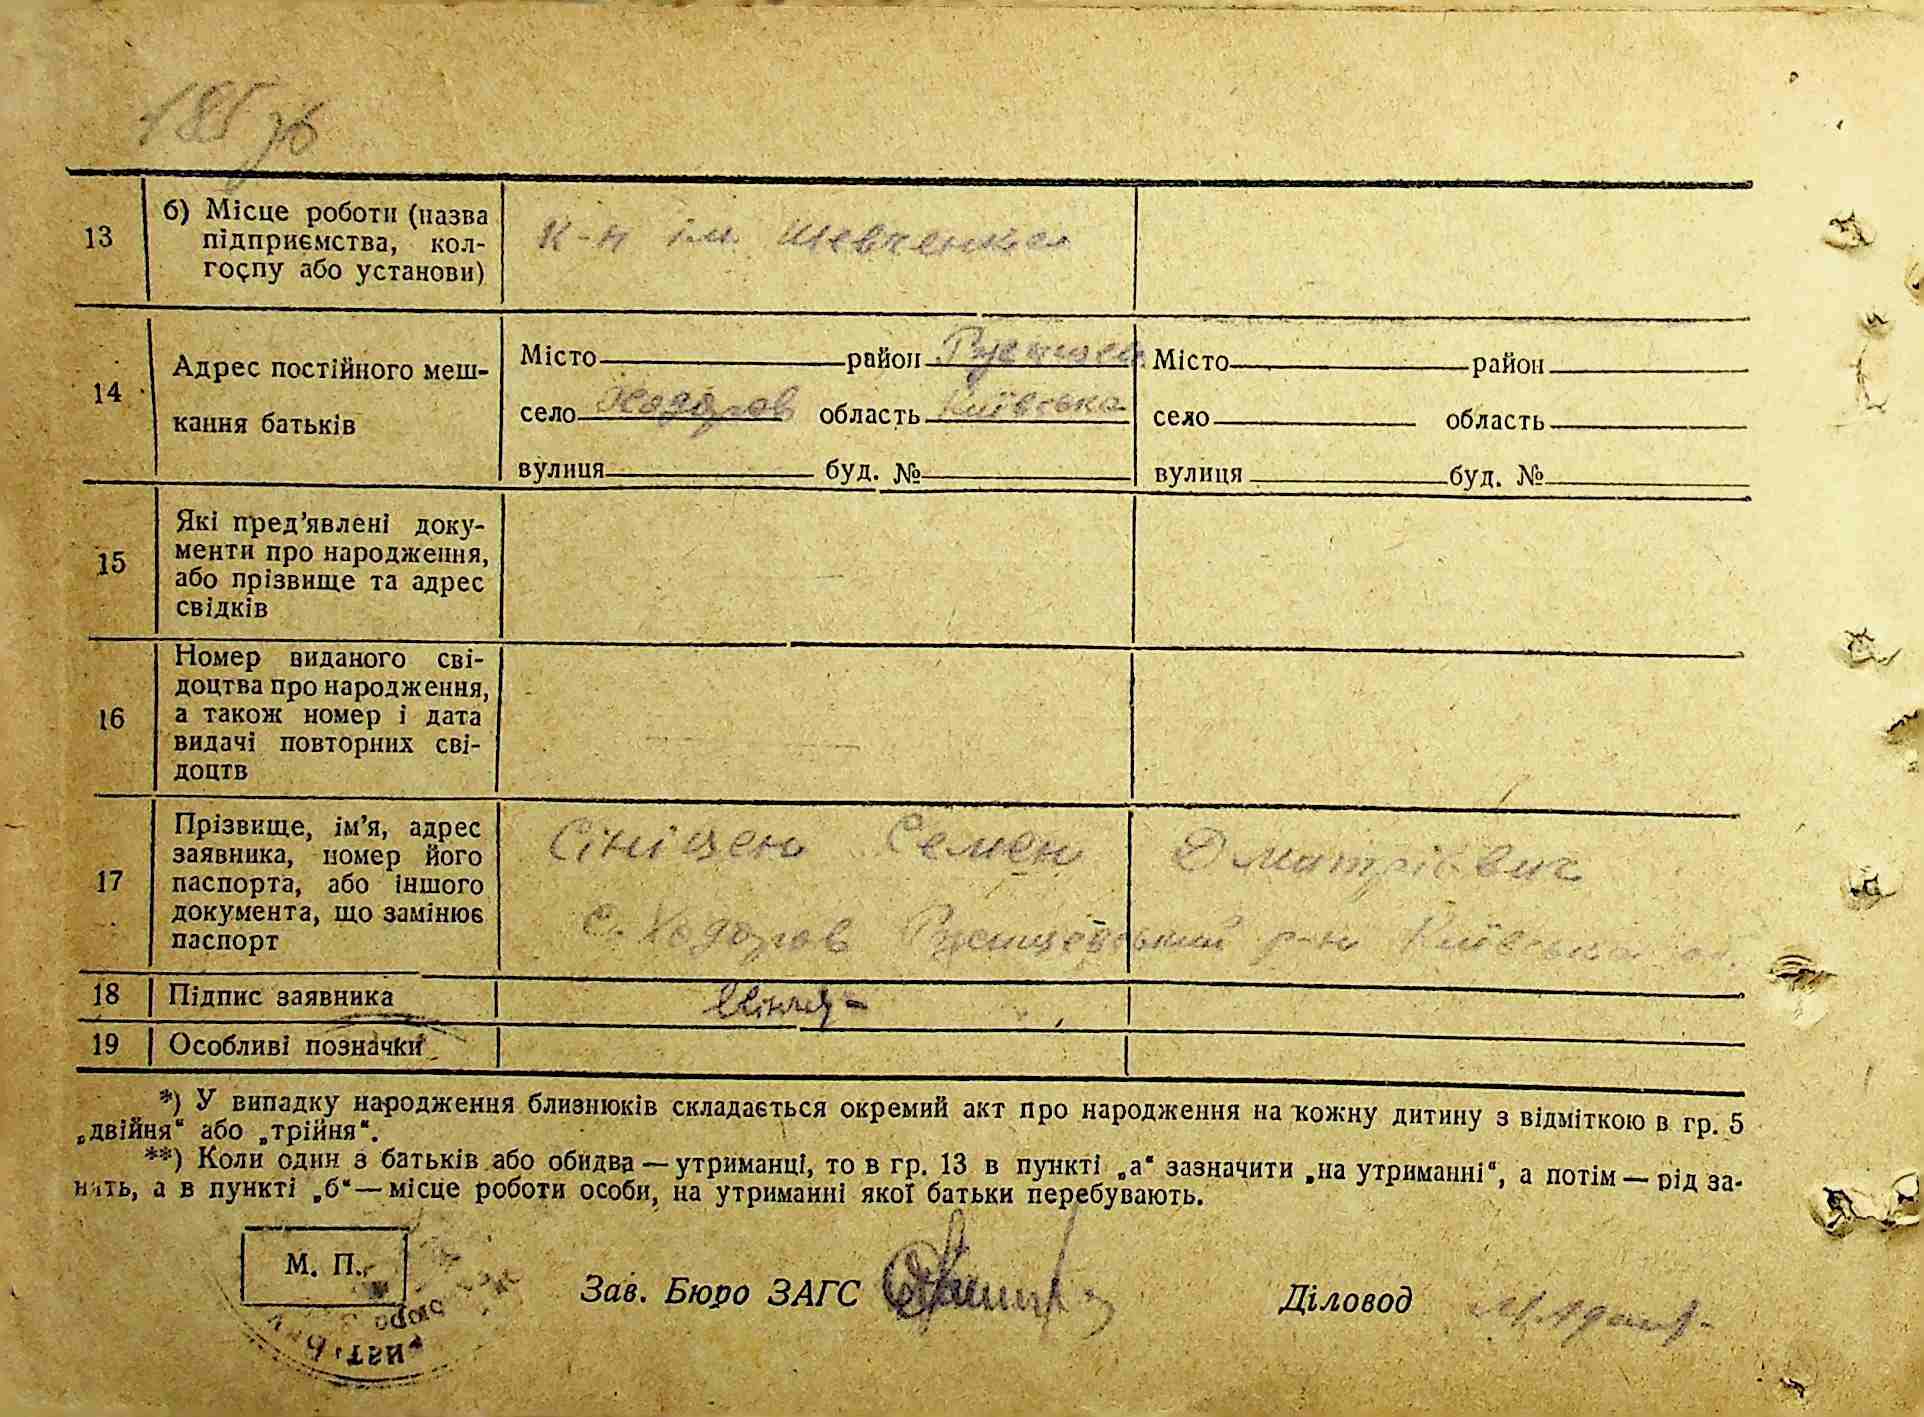 185 зв
13
б) Місце роботи (назва
підприємства, кол-
госпу або установи)
к-п ім Шевченка
14
Адрес постійного меш-
кання батьків
Місто район Ржищев
село Ходорів область Київська
вулиця буд. №
Місто район
село область
вулиця буд. №
15
Які пред'явлені доку-
менти про народження,
або прізвище та адрес
свідків
16
Номер виданого сві-
доцтва про народження,
а також номер і дата
видачі повторних сві-
доцтв
17
Прізвище, ім'я, адрес
заявника, номер його
паспорта, або іншого
документа, що замінює
паспорт
Семен Дматрієвич
с. Ходорів Ржищевський р-н Київська об.
18 Підпис заявника
19 Особливі позначки
*) У випадку народження близнюків складається окремий акт про народження на кожну дитину з відміткою в гр. 5
„двійня“ або „трійня“.
**) Коли один з батьків або обидва — утриманці, то в гр. 13 в пункті „а“ зазначити „на утриманні“, а потім — рід за-
нять, а в пункті „б“ — місце роботи особи, на утриманні якої батьки перебувають.
М. П.
Зав. Бюро ЗАГС
Діловод